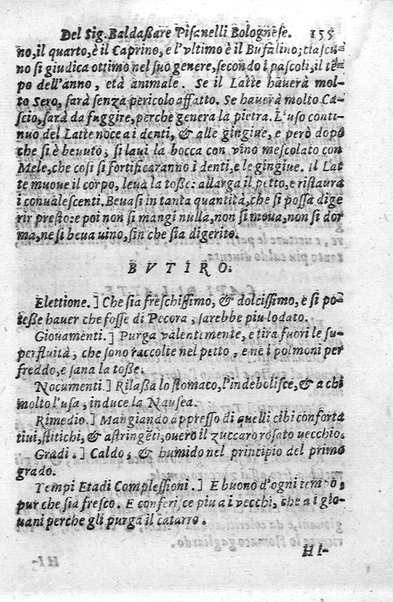 Del Sig. Baldaßare Pisanelli Bolognese. 155
no, il quarto, è il Caprino, e l'vltimo è il Bufalino; ciascu
no si giudica ottimo nel suo genere, secondo i pascoli, il tẽ
po dell'anno, età animale. Se il Latte hauerà mol
to Sero, sarà senza pericolo affatto. Se hauerà molto Ca
scio, sarà da fuggire, perche genera la pietra. L'uso conti
nuo del Latte noce ai denti, & alle gingiue, e però dopò
che si è beuuto, si laui la bocca con vino mescolato con
Mele, che cosi si fortificaranno i denti, e le gingiue. Il Lat
te muoue il corpo, leua la toße: allarga il petto, e ristaura
i conualescenti. Beuasi in tanta quantità, che si possa dige
rir presto: e poi non si mangi nulla, non si moua, non si dor
ma, ne si beua uino, sin che sia digerito.
BVTIRO.
Elettione.] Che sia freschissimo, & dolcissimo, e si po
teße hauer che fosse di Pecora, sarebbe piu lodato.
Giouamenti.] Purga valentemente, e tira fuori le su
perfluità, che sono raccolte nel petto, e ne i polmoni per
freddo, e sana la toße.
Nocumenti.] Rilaßa lo stomaco, l'indebolisce, & a chi
molto l'usa, induce la Nausea.
Rimedio.] Mangiando appresso di quelli cibi conforta
tiui, stitichi, & astringẽti, ouero il zuccaro rosato vecchio.
Gradi.] Caldo, & humido nel principio del primo
grado.
Tempi Etadi Complessioni.] E buono d'ogni tempo,
pur che sia fresco. E conferisce piu a i vecchi, che a i gio
uani perche gli purga il catarro.
HI-